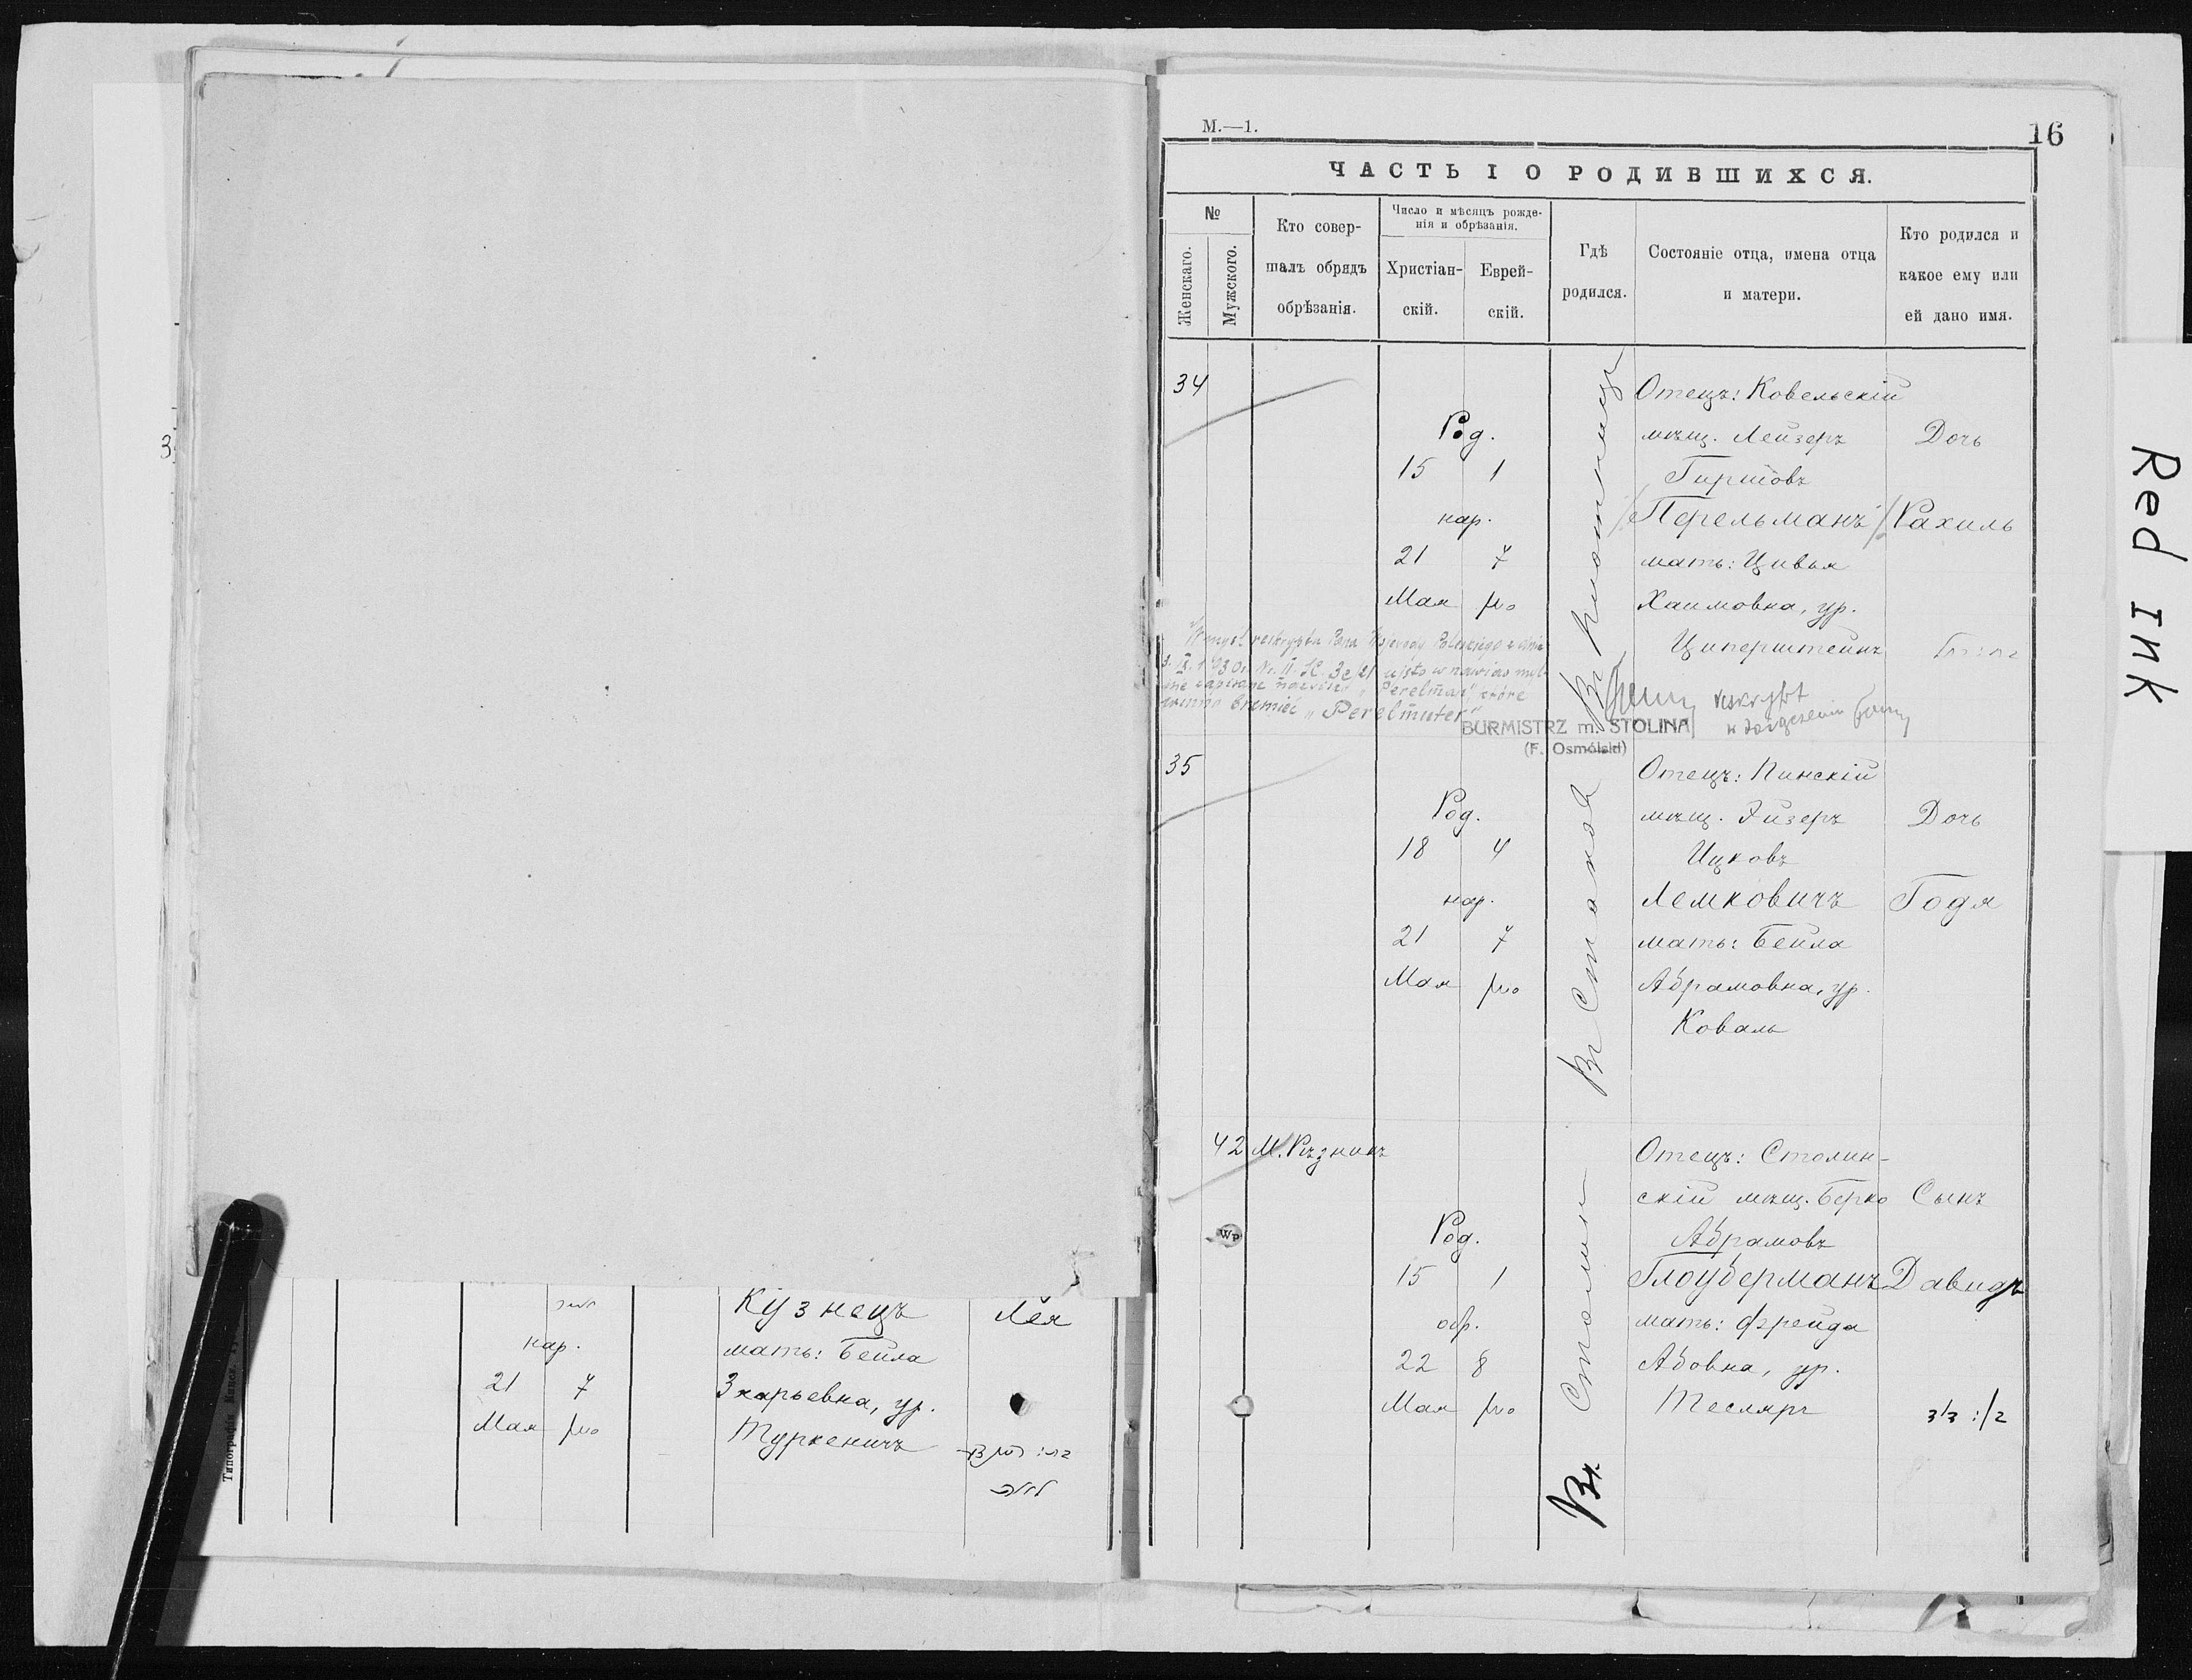 Red Ink
16
М.—1.
ЧАСТЬ I О РОДИВШИХСЯ.
№
Женскаго.
Мужскаго.
Кто совершалъ обрядъ обрѣзанія.
Число и мѣсяцъ рожденія и обрѣзанія.
Христіанскій.
Еврейскій.
Гдѣ родился.
Состояніе отца, имена отца и матери.
Кто родился и какое ему или ей дано имя.
34
Род.
15 1
нар.
21 7
Мая
Отецъ: Ковельскій
мѣщ. Лейзеръ
Гиршовъ
/Перельманъ/
мать: Цивья
Хаимовна, ур.
Циперштейнъ
Дочь
Рахиль
zapisane nazwisko „Perelman” które
winno brzmieć „Perelmuter”
BURMISTRZ m. STOLINA
(F. Osmólski)
35
Род.
18 4
нар.
21 7
Мая
Въ Стахов
Отецъ: Пинскій
мѣщ. Эйзеръ
Ицковъ
Лемковичъ
мать: Бейла
Абрамовна, ур.
Коваль
Дочь
Годя
42
М. Рѣзникъ
Wp
Род.
15 1
обр.
22 8
Мая
Въ Столин
Отецъ: Столин-
скій мѣщ. Берко
Абрамовъ
Глоуберманъ
мать: Фрейда
Абовна, ур.
Тесляръ
Сынъ
Давидъ
нар.
21 7
Мая
Кузнецъ
мать: Бейла
Зкарьевна, ур.
Туркеничъ
Лея